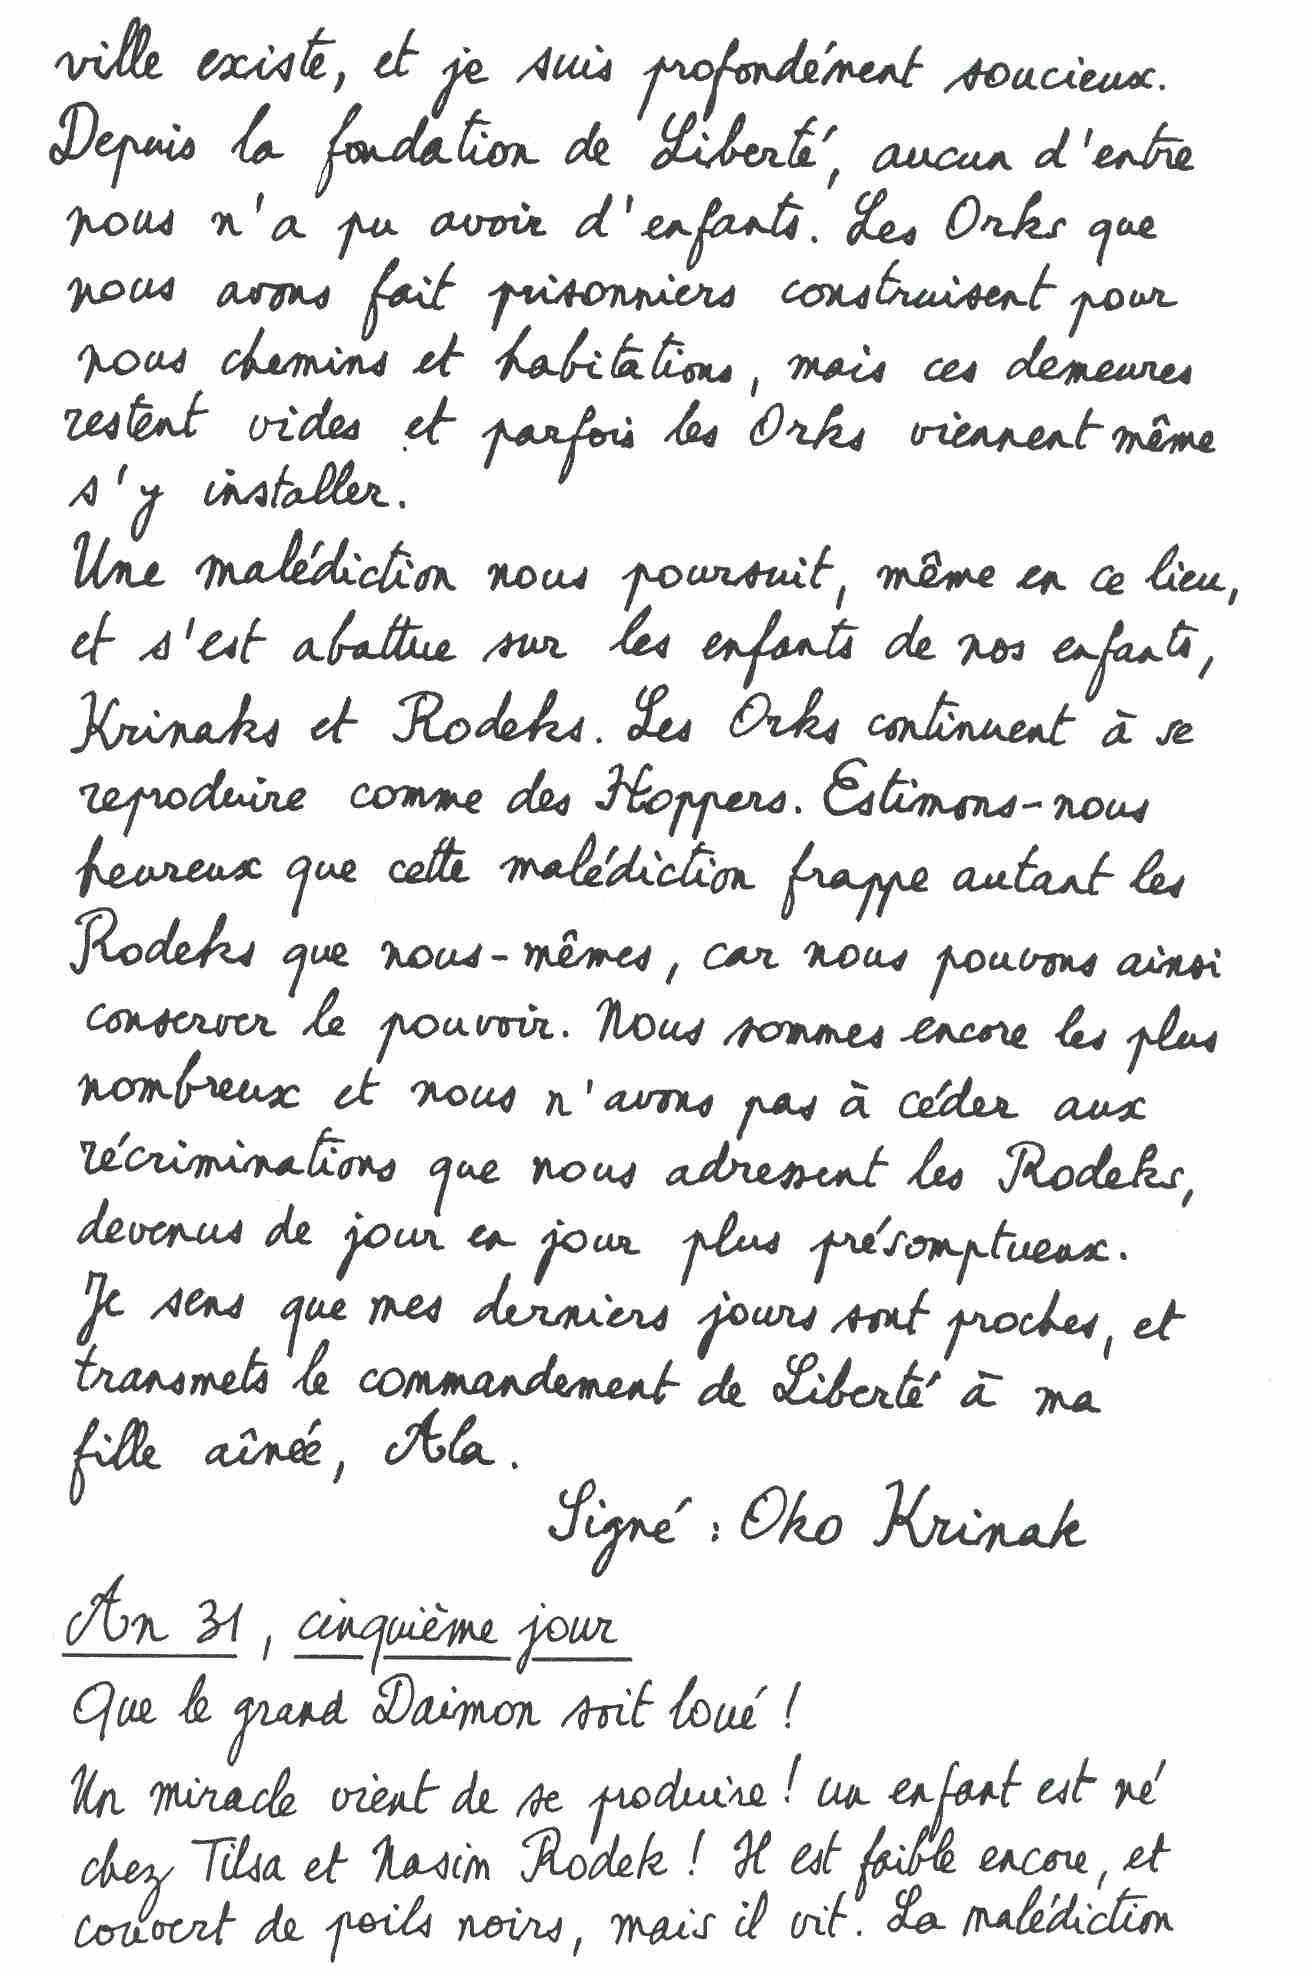 ville existe, et je suis profondément soucieux.
Depuis la fondation de Liberté, aucun d'entre
nous n'a pu avoir d'enfants. Les Orks que
nous avons fait prisonniers construisent pour
nous chemins et habitations, mais ces demeures
restent vides et parfois les Orks viennent même
s'y installer.
Une malédiction nous poursuit, même en ce lieu,
et s'est abattue sur les enfants de nos enfants,
Krinaks et Rodeks. Les Orks continuent à se
reproduire comme des Hoppers. Estimons-nous
heureux que cette malédiction frappe autant les
Rodeks que nous-mêmes, car nous pouvons ainsi
conserver le pouvoir. Nous sommes encore les plus
nombreux et nous n'avons pas à céder aux
récriminations que nous adressent les Rodeks,
devenus de jour en jour plus présomptueux.
Je sens que mes derniers jours sont proches, et
transmets le commandement de Liberté à ma
fille aînée, Ala.
Signé : Oko Krinak
An 31, cinquième jour
Que le grand Daimon soit loué !
Un miracle vient de se produire ! un enfant est né
chez Tilsa et Nasim Rodek ! Il est faible encore, et
couvert de poils noirs, mais il vit. La malédiction